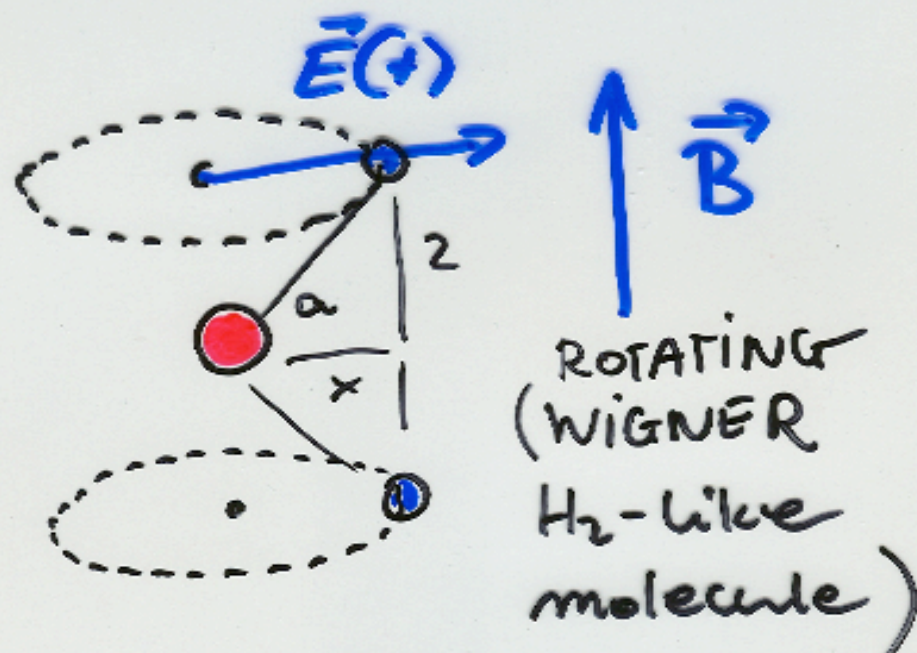 E⃗(t)
B⃗
2
a
x
ROTATING
(WIGNER
H₂-like
molecule)